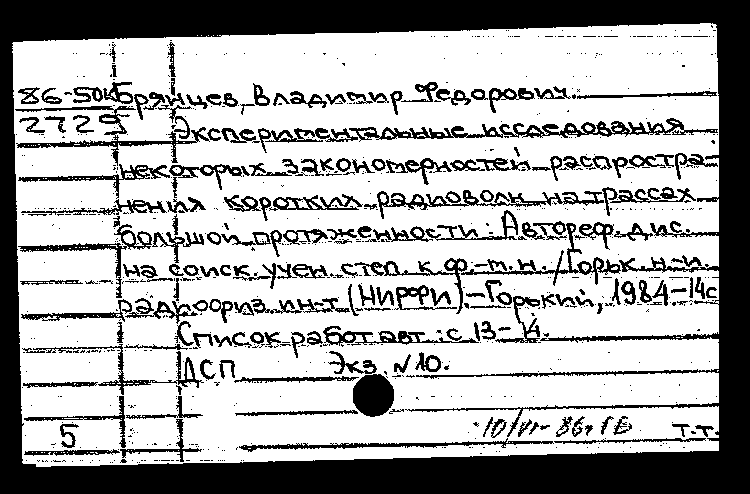 86-50к Брянцев, Владимир Федорович
2725 Экспериментальные исследования
некоторых закономерностей распростра-
нения коротких радиоволн на трассах
большой протяженности: Автореф. дис.
на соиск. учен. степ. к. ф.-м. н. /Горьк. н.-и.
радиофиз. ин-т (НИРФИ).-Горький, 1984-14с
Список работ авт.: с. 13-14.
ДСП Экз. N 10.
5 10/VI-86г. т.т.